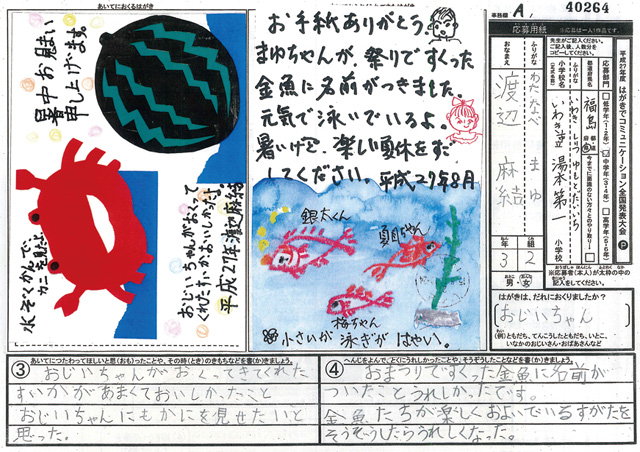 あいてにおくるはがき
暑中お見まい
申し上げます。
水ぞくかんで、
カニを見たよ。
おじいちゃんがおくって
くれたすいかおいしかったよ。
平成27年 渡辺麻結
お手紙ありがとう。
まゆちゃんが、祭りですくった
金魚に名前がつきました。
元気で泳いでいるよ。
暑いけど、楽しい夏休をすご
してください。平成27年8月
銀太くん
夏目ちゃん
梅ちゃん
小さいが泳ぎがはやい。
事務欄 A
40264
応募用紙
※応募は一人1作品です。
平成27年度 はがきでコミュニケーション全国発表大会
応募部門
低学年(1・2年)
中学年(3・4年)
高学年(5・6年)
都道府県名
福島
小学校名
いわき市立湯本第一
小学校
ふりがな
わたなべ まゆ
おなまえ
渡辺 麻結
3年 2組
男・女
※応募者(本人)が太枠の中の
記入をしてください。
はがきは、だれにおくりましたか?
おじいちゃん
(例)ともだち、てんこうしたともだち、いとこ、
いなかのおじいさん・おばあさんなど
③
あいてにつたわってほしいと思(おも)ったことや、その時(とき)のきもちなどを書(か)きましょう。
おじいちゃんがおくってきてくれた
すいかがあまくておいしかったこと
おじいちゃんにもかにを見せたいと
思った。
④
へんじをよんで、とくにうれしかったことや、そうぞうしたことなどを書(か)きましょう。
おまつりですくった金魚に名前が
ついたことうれしかたです。
金魚たちが楽しくおよいでいるすがたを
そうぞうしたらうれしくなった。